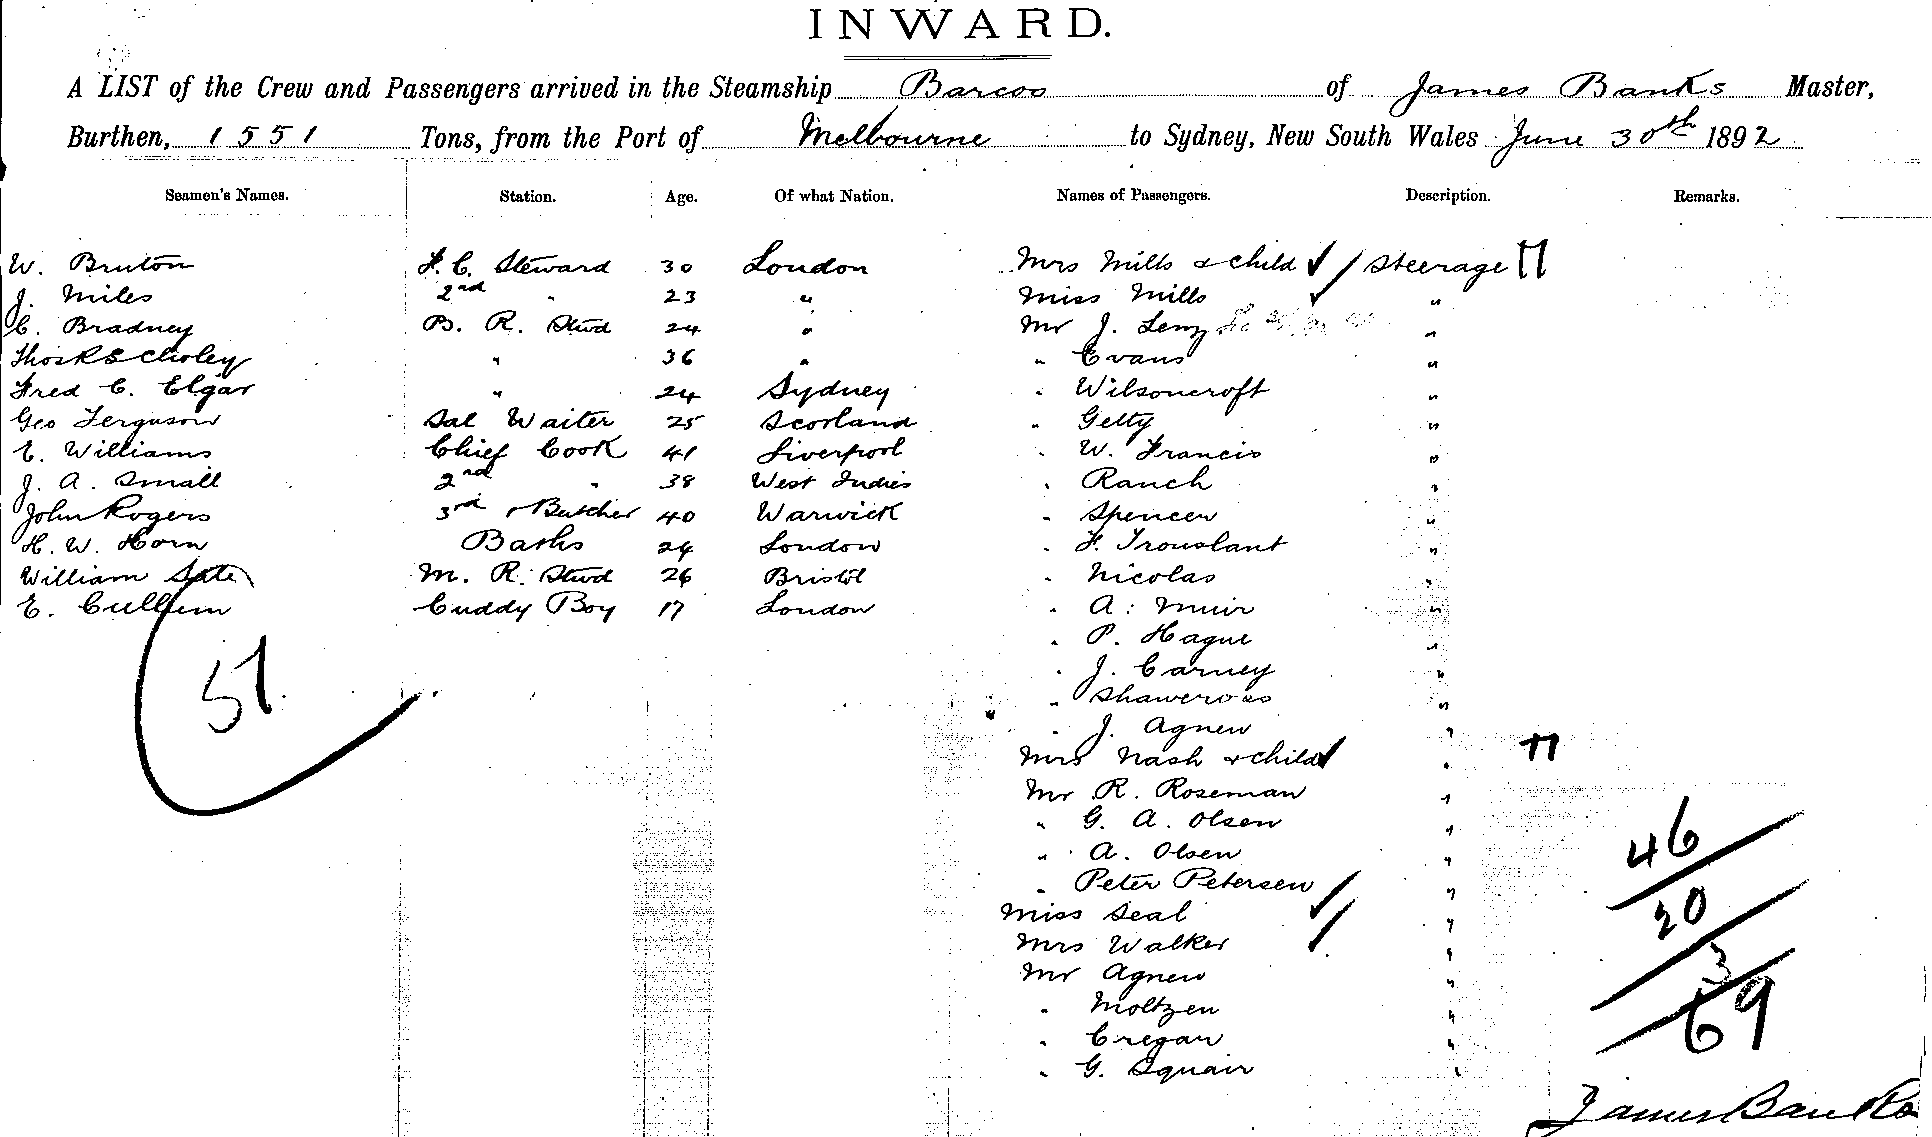 INWARD.
A LIST of the Crew and Passengers arrived in the Steamship Barcoo of James Banks Master,
Burthen, 1551 Tons, from the Port of Melbourne to Sydney, New South Wales June 30th 1892
Seamen's Names. Station. Age. Of what Nation. Names of Passengers. Description. Remarks.
W. Bruton F. C. Steward 30 London Mrs Mills & child Steerage
J. Miles 2nd " 23 " Miss Mills "
C. Bradney B. R. Stwd 24 " Mr J. Lenz "
Thos R Scholey " 36 " " Evans "
Fred C. Elgar " 24 Sydney " Wilsoncroft "
Geo Ferguson Sal Waiter 25 Scorland " Getty "
E. Williams Chief Cook 41 Liverpool " W. Francis "
J. A. Small 2nd " 38 West Indies " Ranch "
John Rogers 3rd & Butcher 40 Warwick " Spencer "
H. W. Horn Baths 24 London " F. Trouslant "
William M. R. Stwd 26 Bristol " Nicolas "
E. Cullum Cuddy Boy 17 London " A. Muir "
" P. Hague "
" J. Carney "
" Shawcross "
51
" J. Agnew "
Mrs Nash & child "
Mr R. Roseman "
" G. A. Olsen "
" A. Olsen "
46
" Peter Petersen "
Miss Seal "
20
Mrs Walker "
3
Mr Agnew "
" Moltzen "
69
" Cregan "
" G. Squair "
James Banks